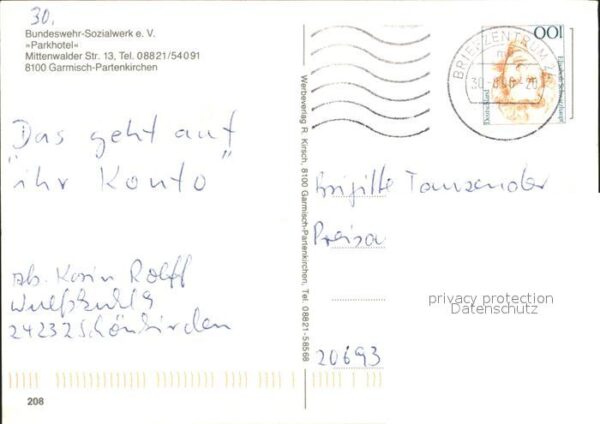 30.
Bundeswehr-Sozialwerk e. V.
»Parkhotel«
Mittenwalder Str. 13, Tel. 08821/54091
8100 Garmisch-Partenkirchen
Das geht auf
"ihr Konto"
Abs. Karin Rolff
24232 Schönkirchen
208
Werbeverlag R. Kirsch, 8100 Garmisch-Partenkirchen, Tel. 08821-58568
BRIEFZENTRUM
100
Deutschland
Brigitte Tausender
20693
privacy protection
Datenschutz